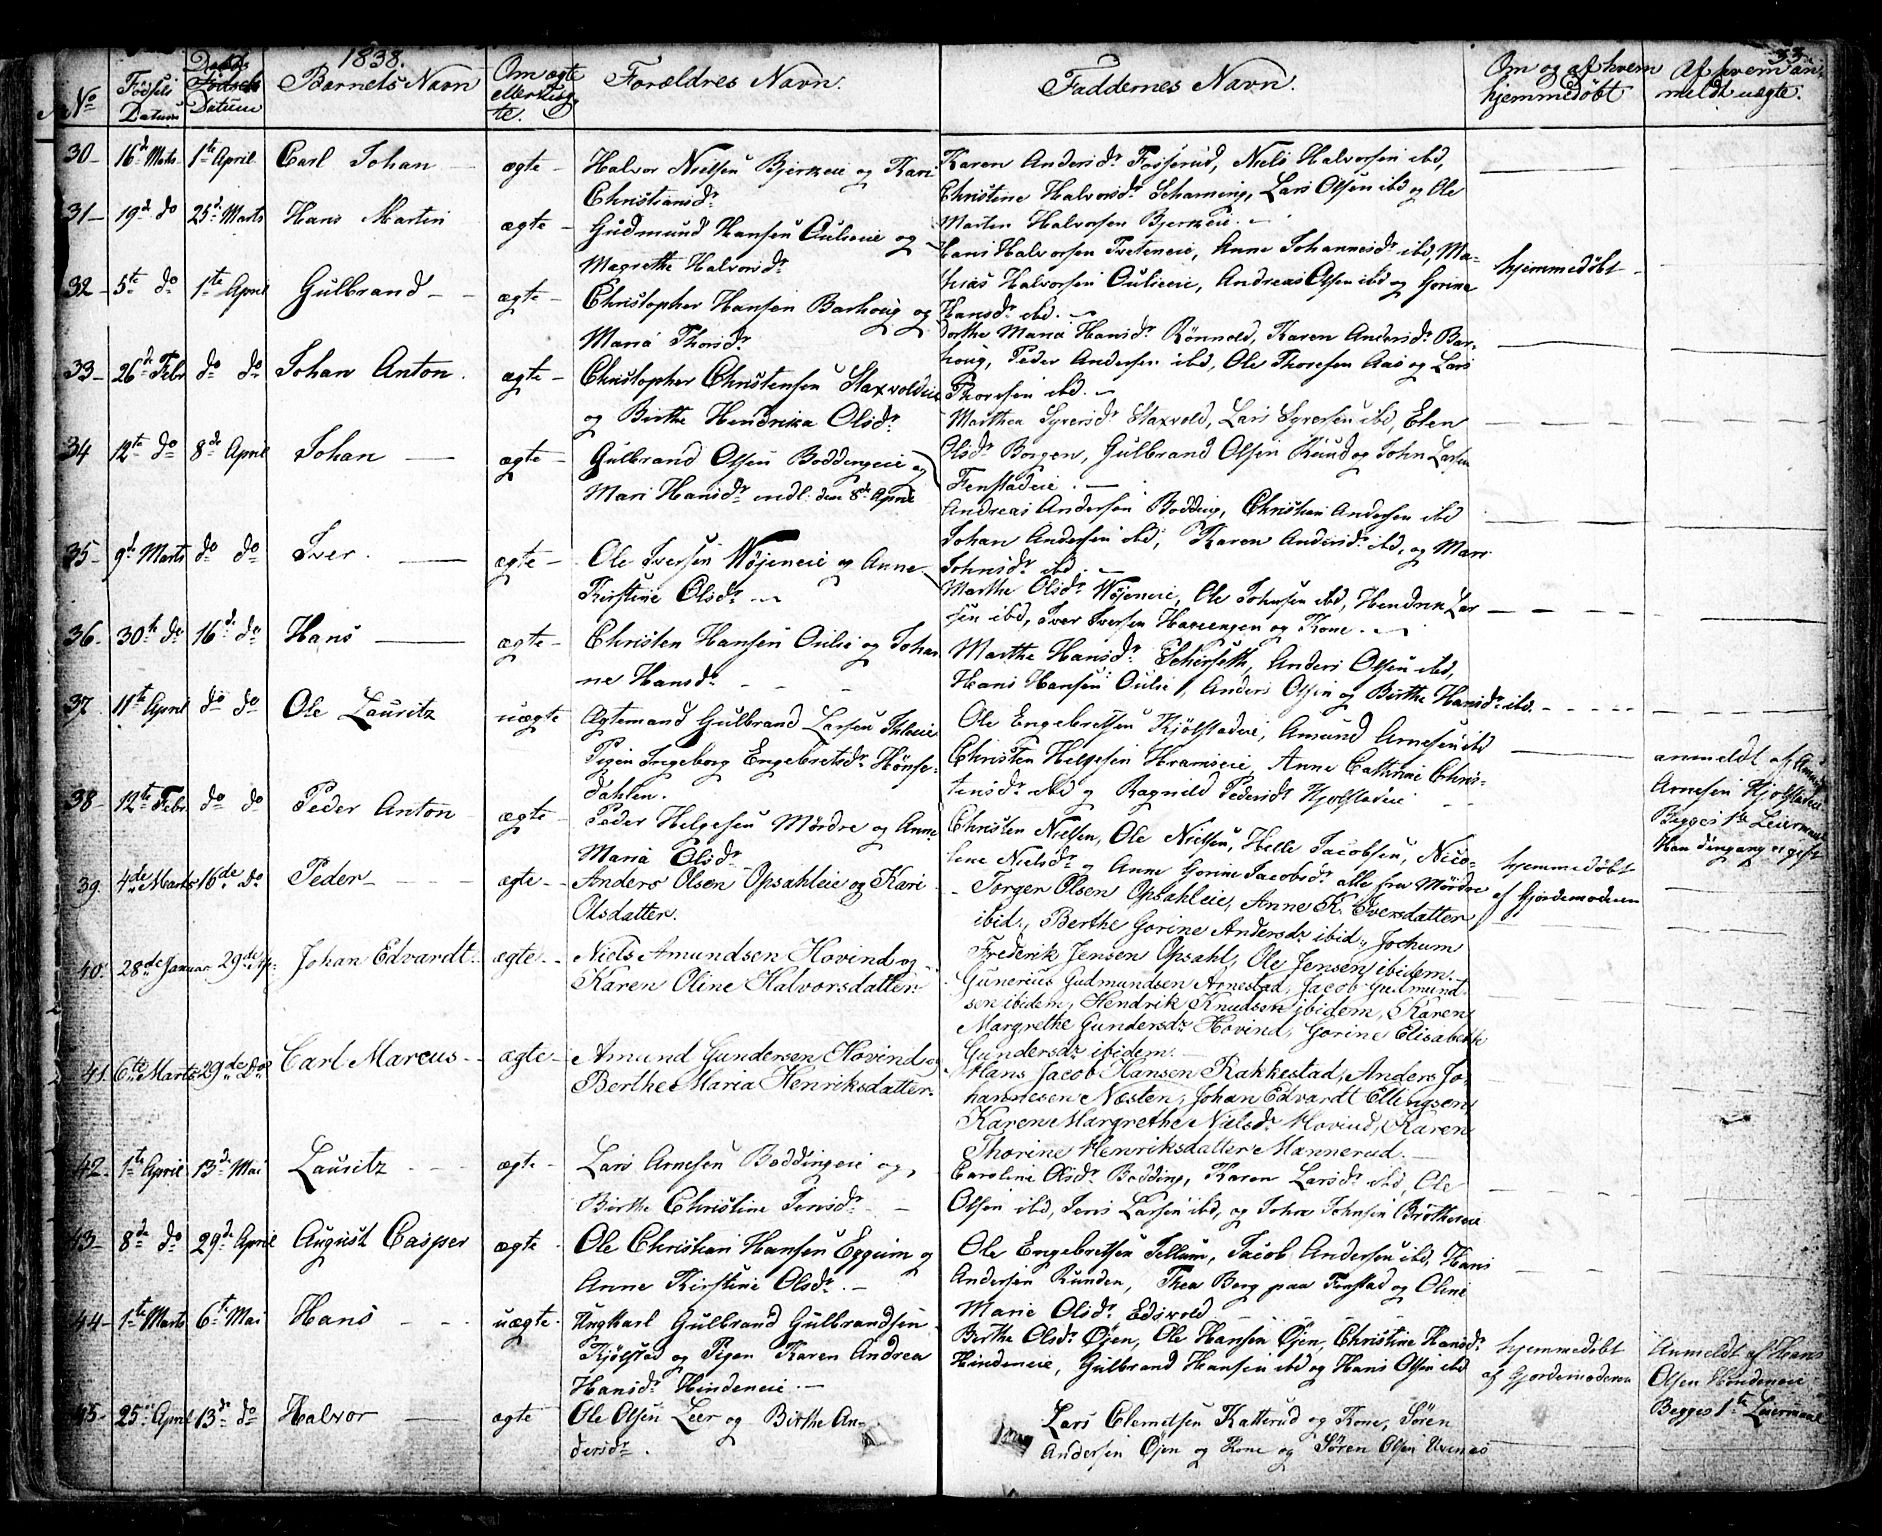 1838.
33.
No
Fødsels Datum
Daabs Datum
Barnets Navn
Om ægte eller uæg- te.
Forældres Navn.
Faddernes Navn.
Om og af hvem hjemmedøbt
Af hvem an- meldt uægte.
30 16de Marts 1te April Carl Johan ægte Halvor Nielsen Bjerkeeie og Kari
Christiansdr
Karen Andersdr Niels Halvorsen ibd,
Christine Halvorsdr Lars Olsen ibd og Ole
Morten Halvorsen Bjerkeie.
31 19de do 25de Marts Hans Martin ægte Gudmund Hansen Oulieeie og
Magrethe Halvorsdr
Hans Halvorsen Tveteneie, Anne Johannesdr ibd, Ma-
thias Halvorsen Oulieeie, Andreas Olsen ibd og Gorine
Hansdr ibd.
hjemmedøbt
32 5te do 1te April Gulbrand ægte Christopher Hansen Barhoug og
Maria Thorsdr
Dorthe Maria Hansdr Rønnold, Karen Andersdr Bar-
houg, Peder Andersen ibd, Ole Thoresen Aas og Lars
Thoresen ibd.
33 26de Febr do do Johan Anton. ægte Christopher Christensen Staxvoldeie
og Birthe Hendrika Olsdr
Marthea Syversdr Staxvold, Lars Syversen ibd, Elen
Olsdr Borgen, Gulbrand Olsen Ruud og John Larsen
Fenstadeie.
34 12te do 8de April Johan ægte Gulbrand Olsen Boddingeie og
Mari Hansdr indl. den 8de April
Andreas Andersen Bodding, Christian Andersen ibd
Johan Andersen ibd, Karen Andersdr ibd, og Mari
Johnsdr ibd.
35 9de Marts do do Iver. ægte Ole Iversen Wøjeneie og Anne
Kirstine Olsdr
Marthe Olsdr Wøjeneie, Ole Johnsen ibd, Hendrik Lar-
sen ibd, Iver Iversen Haveengen og Kone.
36. 30te do 16de do Hans ægte Christen Hansen Oulie og Johan
ne Hansdr
Marthe Hansdr Anders Olsen ibd,
Hans Hansen Oulie, Anders Olsen og Birthe Hansdr ibd.
37. 11te April do do Ole Lauritz uægte Ægtemand Gulbrand Larsen
Pigen Ingeborg Engebretsdr Hønse-
dahlen.
Ole Engebretsen Kjølstadeie, Amund Arnesen ibd
Christen Helgesen Anne Cathrine Chris-
tensdr ibd og Ragnild Pedersdr Kjølstadeie
anmeldt af Amund
Arnesen Kjølstadeie
Begges 1te Leiermaal
Han dengang er gift
38 12te Febr. do do Peder Anton ægte Peder Helgesen Mørdre og Anne
Maria Olsdr
Christen Nielsen, Ole Nielsen, Helle Jacobsen, Nico-
line Nielsdr og Anne Gorine Jacobsdr alle fra Mørdre
hjemmedøbt
af Gjordemoderen
39. 4de Marts 16de do Peder ægte Anders Olsen Opsahleie og Kari
Olsdatter.
Torgen Olsen Opsahleie, Anne K. Iversdatter
ibid., Berthe Gorine Andersdr ibid., Jochum
Frederik Jensen Opsahl, Ole Jensen ibidem.
40. 28de Januar 29de Ap. Johan Edvardt. ægte Niels Amundsen Hovind og
Karen Oline Halvorsdatter.
Gunerius Gudmundsen Arnestad, Jacob Gudmund-
sen ibidem, Hendrik Knudsen ibidem, Karen
Margrethe Gundersdr Hovind, Gorine Elisabeth
Gundersdr ibidem.
41. 6te Marts 29de do Carl Marcus ægte Amund Gundersen Hovind og
Berthe Maria Henriksdatter.
Hans Jacob Hansen Rakkestad, Anders Jo-
hannesen Næsten, Johan Edvardt Ellingsen
Karen Margrethe Nielsdr Hovind, Karen
Thorine Henriksdatter Mannerud.
42. 1te April 13de Mai Lauritz ægte Lars Arnesen Boddingeie og
Birthe Christine Jensdr
Caroline Olsdr Bodding, Karen Larsdr ibd, Ole
Olsen ibd, Jens Larsen ibd, og Johan Johnsen Brøthereie
43 8de do 29de April August Casper ægte Ole Christian Hansen Eggum og
Anne Kirstine Olsdr
Ole Engebretsen Tellum, Jacob Andersen ibd, Hans
Andersen Runden, Thea Berg paa Fenstad og Oline
Marie Olsdr Edsvold
44 1te Marts 6te Mai Hans uægte Ungkarl Gulbrand Gulbrandsen
Kjølstad og Pigen Karen Andrea
Hansdr Hindeneie.
Birthe Olsdr Øjen, Ole Hansen Øjen, Christine Hansdr
Hindeneie, Gulbrand Hansen ibd og Hans Olsen ibd
hjemmedøbt
af Gjordemoderen
Anmeldt af Hans
Olsen Hindeneie
Begges 1te Leiermaal
45. 25de April 13de do Halvor ægte Ole Olsen Leer og Birthe An-
dersdr.
Lars Clemetsen Katterud og Kone, Søren
Andersen Øjen og Kone og Søren Olsen